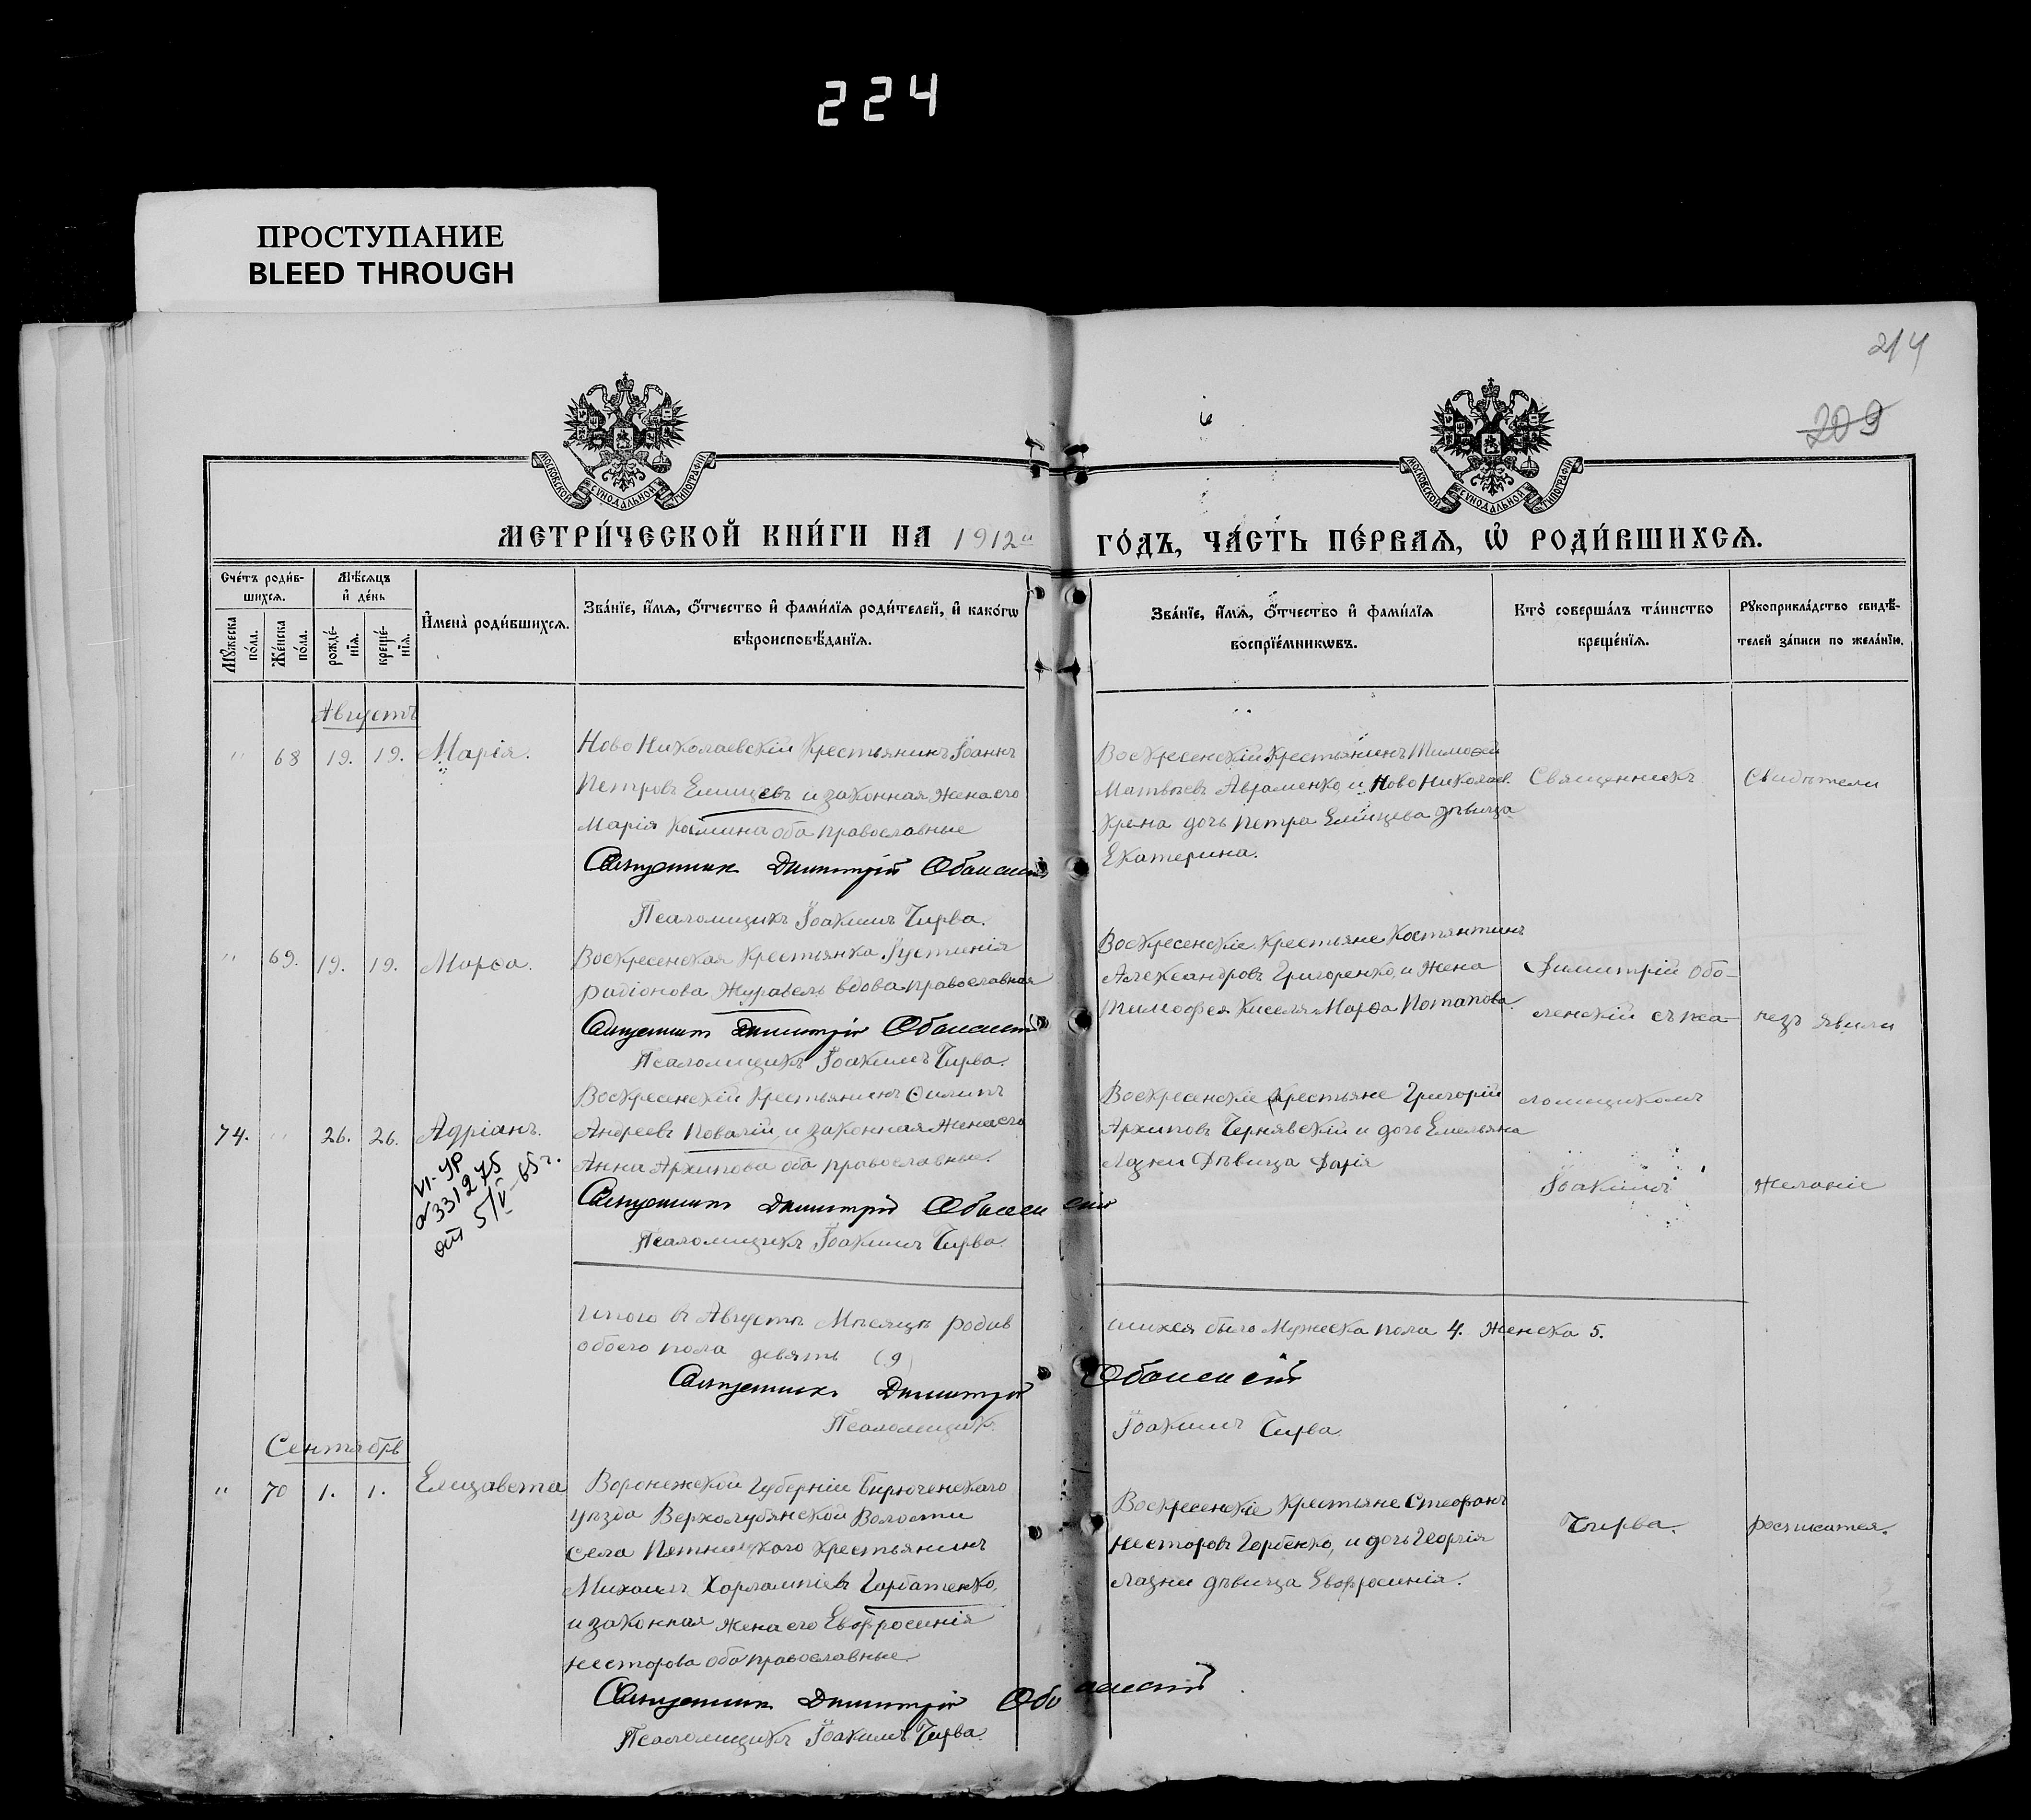 224
ПРОСТУПАНИЕ
BLEED THROUGH
214
209
МОСКОВСКОЙ СУНОДАЛЬНОЙ ТИПОГРАФІИ
МОСКОВСКОЙ СУНОДАЛЬНОЙ ТИПОГРАФІИ
МЕТРИ́ЧЕСКОЙ КНИ́ГИ НА 1912й ГО́ДЪ, ЧА́СТЬ ПЕ́РВАѦ, Ѡ҆ РОДИ́ВШИХСѦ.
Сче́тъ роди́в-
шихсѧ.
Мѣ́сѧцъ
и҆ де́нь
Мꙋ́жеска
по́ла.
Же́нска
по́ла.
рожде́-
нїѧ.
креще́-
нїѧ.
И҆мена̀ роди́вшихсѧ.
Зва́нїе, и҆́мѧ, ѻ҆́тчество и҆ фами́лїѧ роди́телей, и҆ како́гѡ
вѣроисповѣ́данїѧ.
Зва́нїе, и҆́мѧ, ѻ҆́тчество и҆ фами́лїѧ
воспрїе́мникѡвъ.
Кто̀ соверша́лъ та́инство
креще́нїѧ.
Рꙋкоприкла́дство свидѣ́-
телей за́писи по жела́нїю.
Августъ
" 68 19. 19. Марія.
Ново Николаевскій Крестьянинъ Іоаннъ
Петровъ Елищевъ и законная жена его
Марія Козмина оба православные
Священникъ Димитрій Оболенскій
Псаломщикъ Іоакимъ Чирва.
Воскресенскій Крестьянинъ Тимоѳей
Матвѣевъ Авраменко, и Ново Николаев.
Крѣна дочь Петра Елищева дѣвица
Екатерина.
Священникъ
Свидѣтели
" 69. 19. 19. Марѳа.
Воскресенская Крестьянка Іустинія
Радіонова Журавель вдова православная
Священникъ Димитрій Оболенскій
Псаломщикъ Іоакимъ Чирва.
Воскресенскіе Крестьяне Костянтинъ
Александровъ Григоренко, и жена
Тимофея Киселя Марѳа Потапова.
Димитрій Обо-
ленскій съ пса-
незъ явили
74. " 26. 26. Адріанъ.
VI-УР
№331275
от 5/V-65 г.
Воскресенскій Крестьянинъ Филипъ
Андреевъ Повалій, и законная жена его
Анна Архипова оба православные.
Священникъ Димитрій Оболенскій
Псаломщикъ Іоакимъ Чирва.
Воскресенскіе Крестьяне Григорій
Архиповъ Чернявскій и дочь Емельяна
Лазни Дѣвица Дарія
ломщикомъ
Іоакимъ
желаніе
Итого въ Августѣ Мѣсяцѣ родив шихся было Мужеска пола 4. Женска 5.
обоего пола девять (9)
Священникъ Димитрій Оболенскій
Псаломщикъ Іоакимъ Чирва.
Сентябрь
" 70 1. 1. Елизавета
Воронежской Губерніи Бирюченскаго
уѣзда Верхолубянской Волости
села Крестьянинъ
Михаилъ Харлампіевъ Горбатенко,
и законная жена его Евфросинія
Несторова оба православные.
Священникъ Димитрій Оболенскій
Псаломщикъ Іоакимъ Чирва.
Воскресенскіе Крестьяне Стефанъ
Несторовъ Горбенко, и дочь Георгія
Лазни дѣвица Евфросинія.
Чирва.
росписатся.